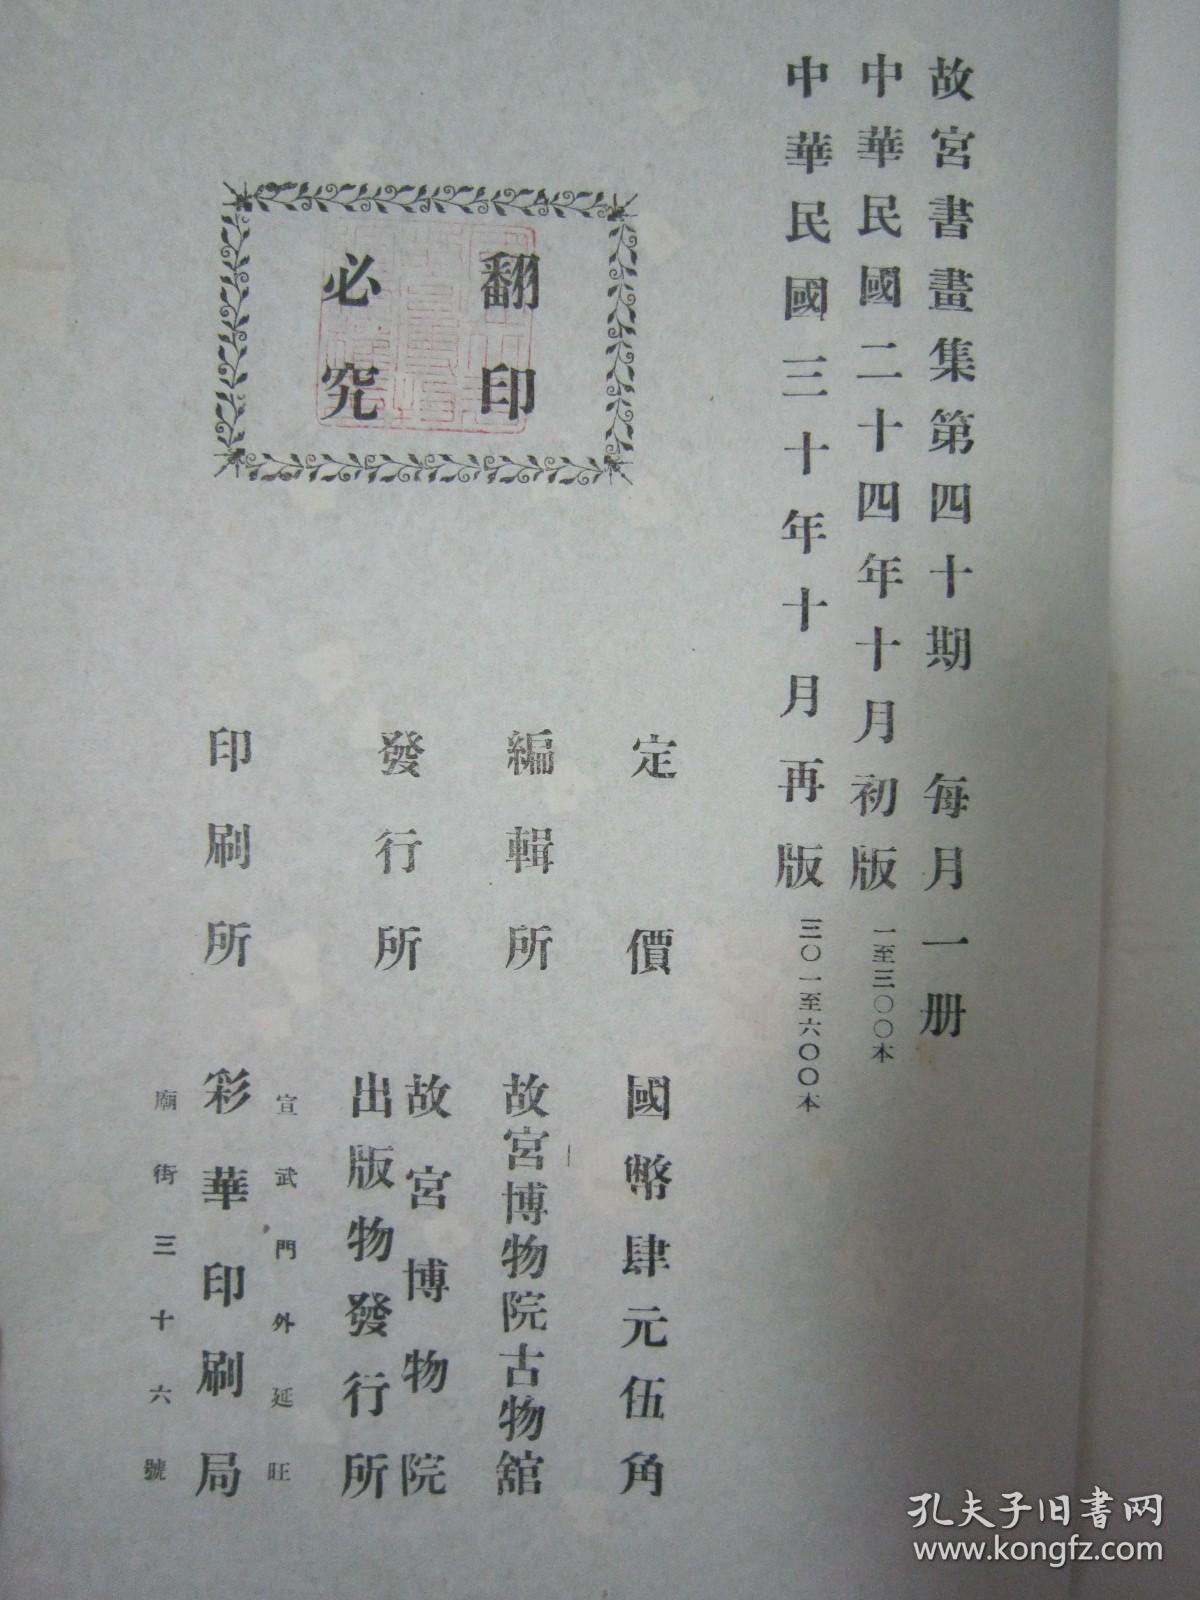 故宮書畫集第四十期　每月一册
中華民國二十四年十月初版 一至三〇〇本
中華民國三十年十月再版 三〇一至六〇〇本
翻印
必究
定價　國幣肆元伍角
編輯所　故宮博物院古物館
發行所　故宮博物院
出版物發行所
印刷所　彩華印刷局
宣武門外延旺
廟街三十六號
孔夫子旧书网
www.kongfz.com